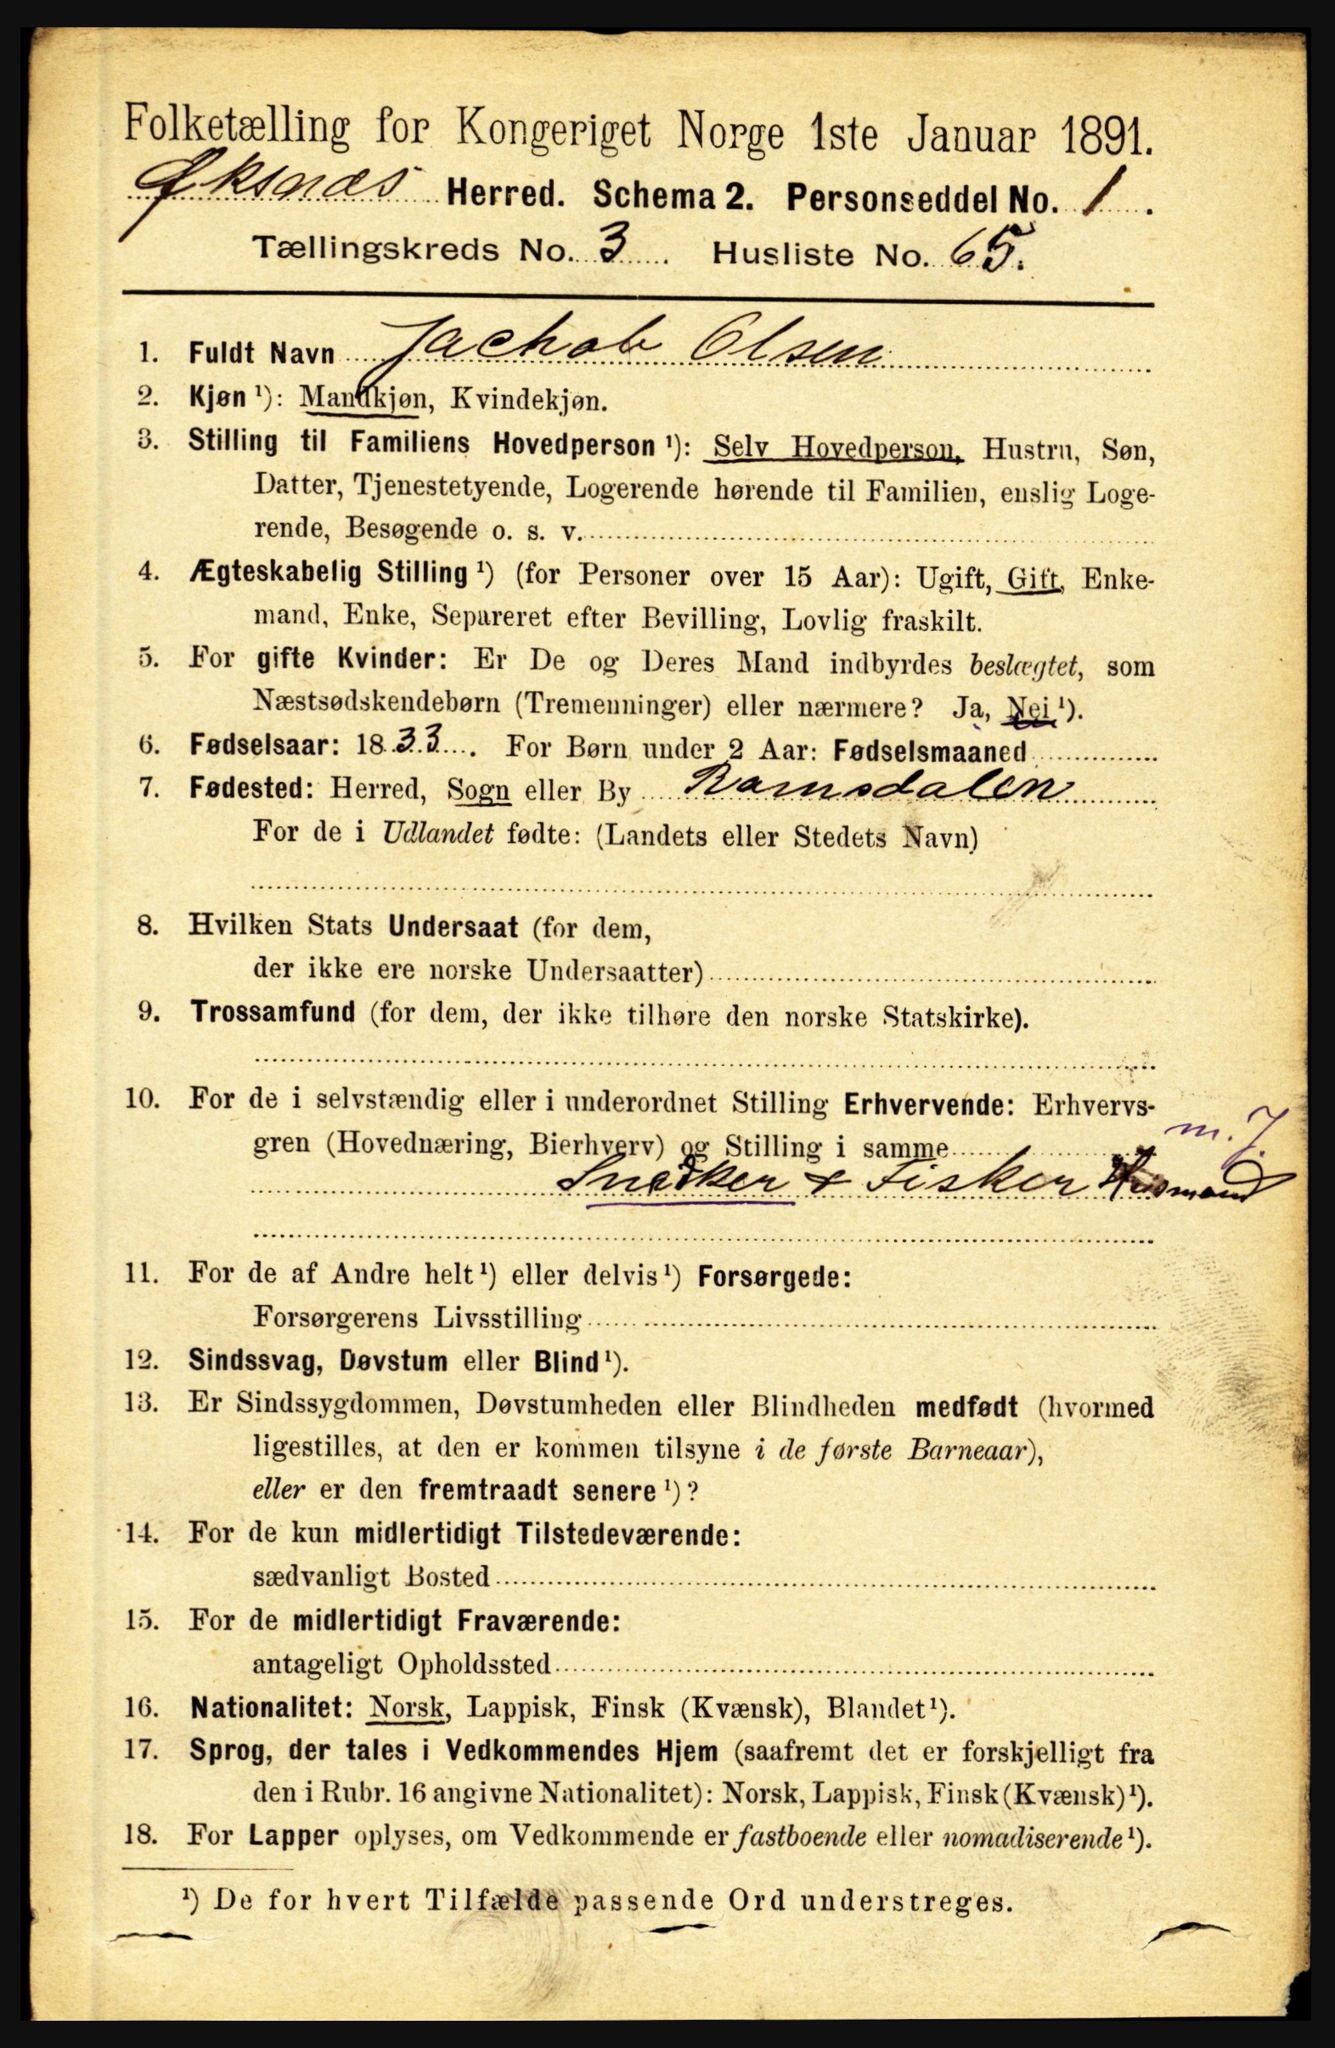 Folketælling for Kongeriget Norge 1ste Januar 1891.
Øksnæs Herred. Schema 2. Personseddel No. 1.
Tællingskreds No. 3. Husliste No. 65.
1. Fuldt Navn Jachob Olsen
2. Kjøn ¹): Mandkjøn, Kvindekjøn.
3. Stilling til Familiens Hovedperson ¹): Selv Hovedperson, Hustru, Søn,
Datter, Tjenestetyende, Logerende hørende til Familien, enslig Loge-
rende, Besøgende o. s. v.
4. Ægteskabelig Stilling ¹) (for Personer over 15 Aar): Ugift, Gift, Enke-
mand, Enke, Separeret efter Bevilling, Lovlig fraskilt.
5. For gifte Kvinder: Er De og Deres Mand indbyrdes beslægtet, som
Næstsødskendebørn (Tremenninger) eller nærmere? Ja, Nei ¹).
6. Fødselsaar: 1833. For Børn under 2 Aar: Fødselsmaaned
7. Fødested: Herred, Sogn eller By Romsdalen
For de i Udlandet fødte: (Landets eller Stedets Navn)
8. Hvilken Stats Undersaat (for dem,
der ikke ere norske Undersaatter)
9. Trossamfund (for dem, der ikke tilhøre den norske Statskirke).
10. For de i selvstændig eller i underordnet Stilling Erhvervende: Erhvervs-
gren (Hovednæring, Bierhverv) og Stilling i samme m. J.
Snedker & Fisker Husmand
11. For de af Andre helt ¹) eller delvis ¹) Forsørgede:
Forsørgerens Livsstilling
12. Sindssvag, Døvstum eller Blind ¹).
13. Er Sindssygdommen, Døvstumheden eller Blindheden medfødt (hvormed
ligestilles, at den er kommen tilsyne i de første Barneaar),
eller er den fremtraadt senere ¹)?
14. For de kun midlertidigt Tilstedeværende:
sædvanligt Bosted
15. For de midlertidigt Fraværende:
antageligt Opholdssted
16. Nationalitet: Norsk, Lappisk, Finsk (Kvænsk), Blandet ¹).
17. Sprog, der tales i Vedkommendes Hjem (saafremt det er forskjelligt fra
den i Rubr. 16 angivne Nationalitet): Norsk, Lappisk, Finsk (Kvænsk) ¹).
18. For Lapper oplyses, om Vedkommende er fastboende eller nomadiserende ¹).
¹) De for hvert Tilfælde passende Ord understreges.